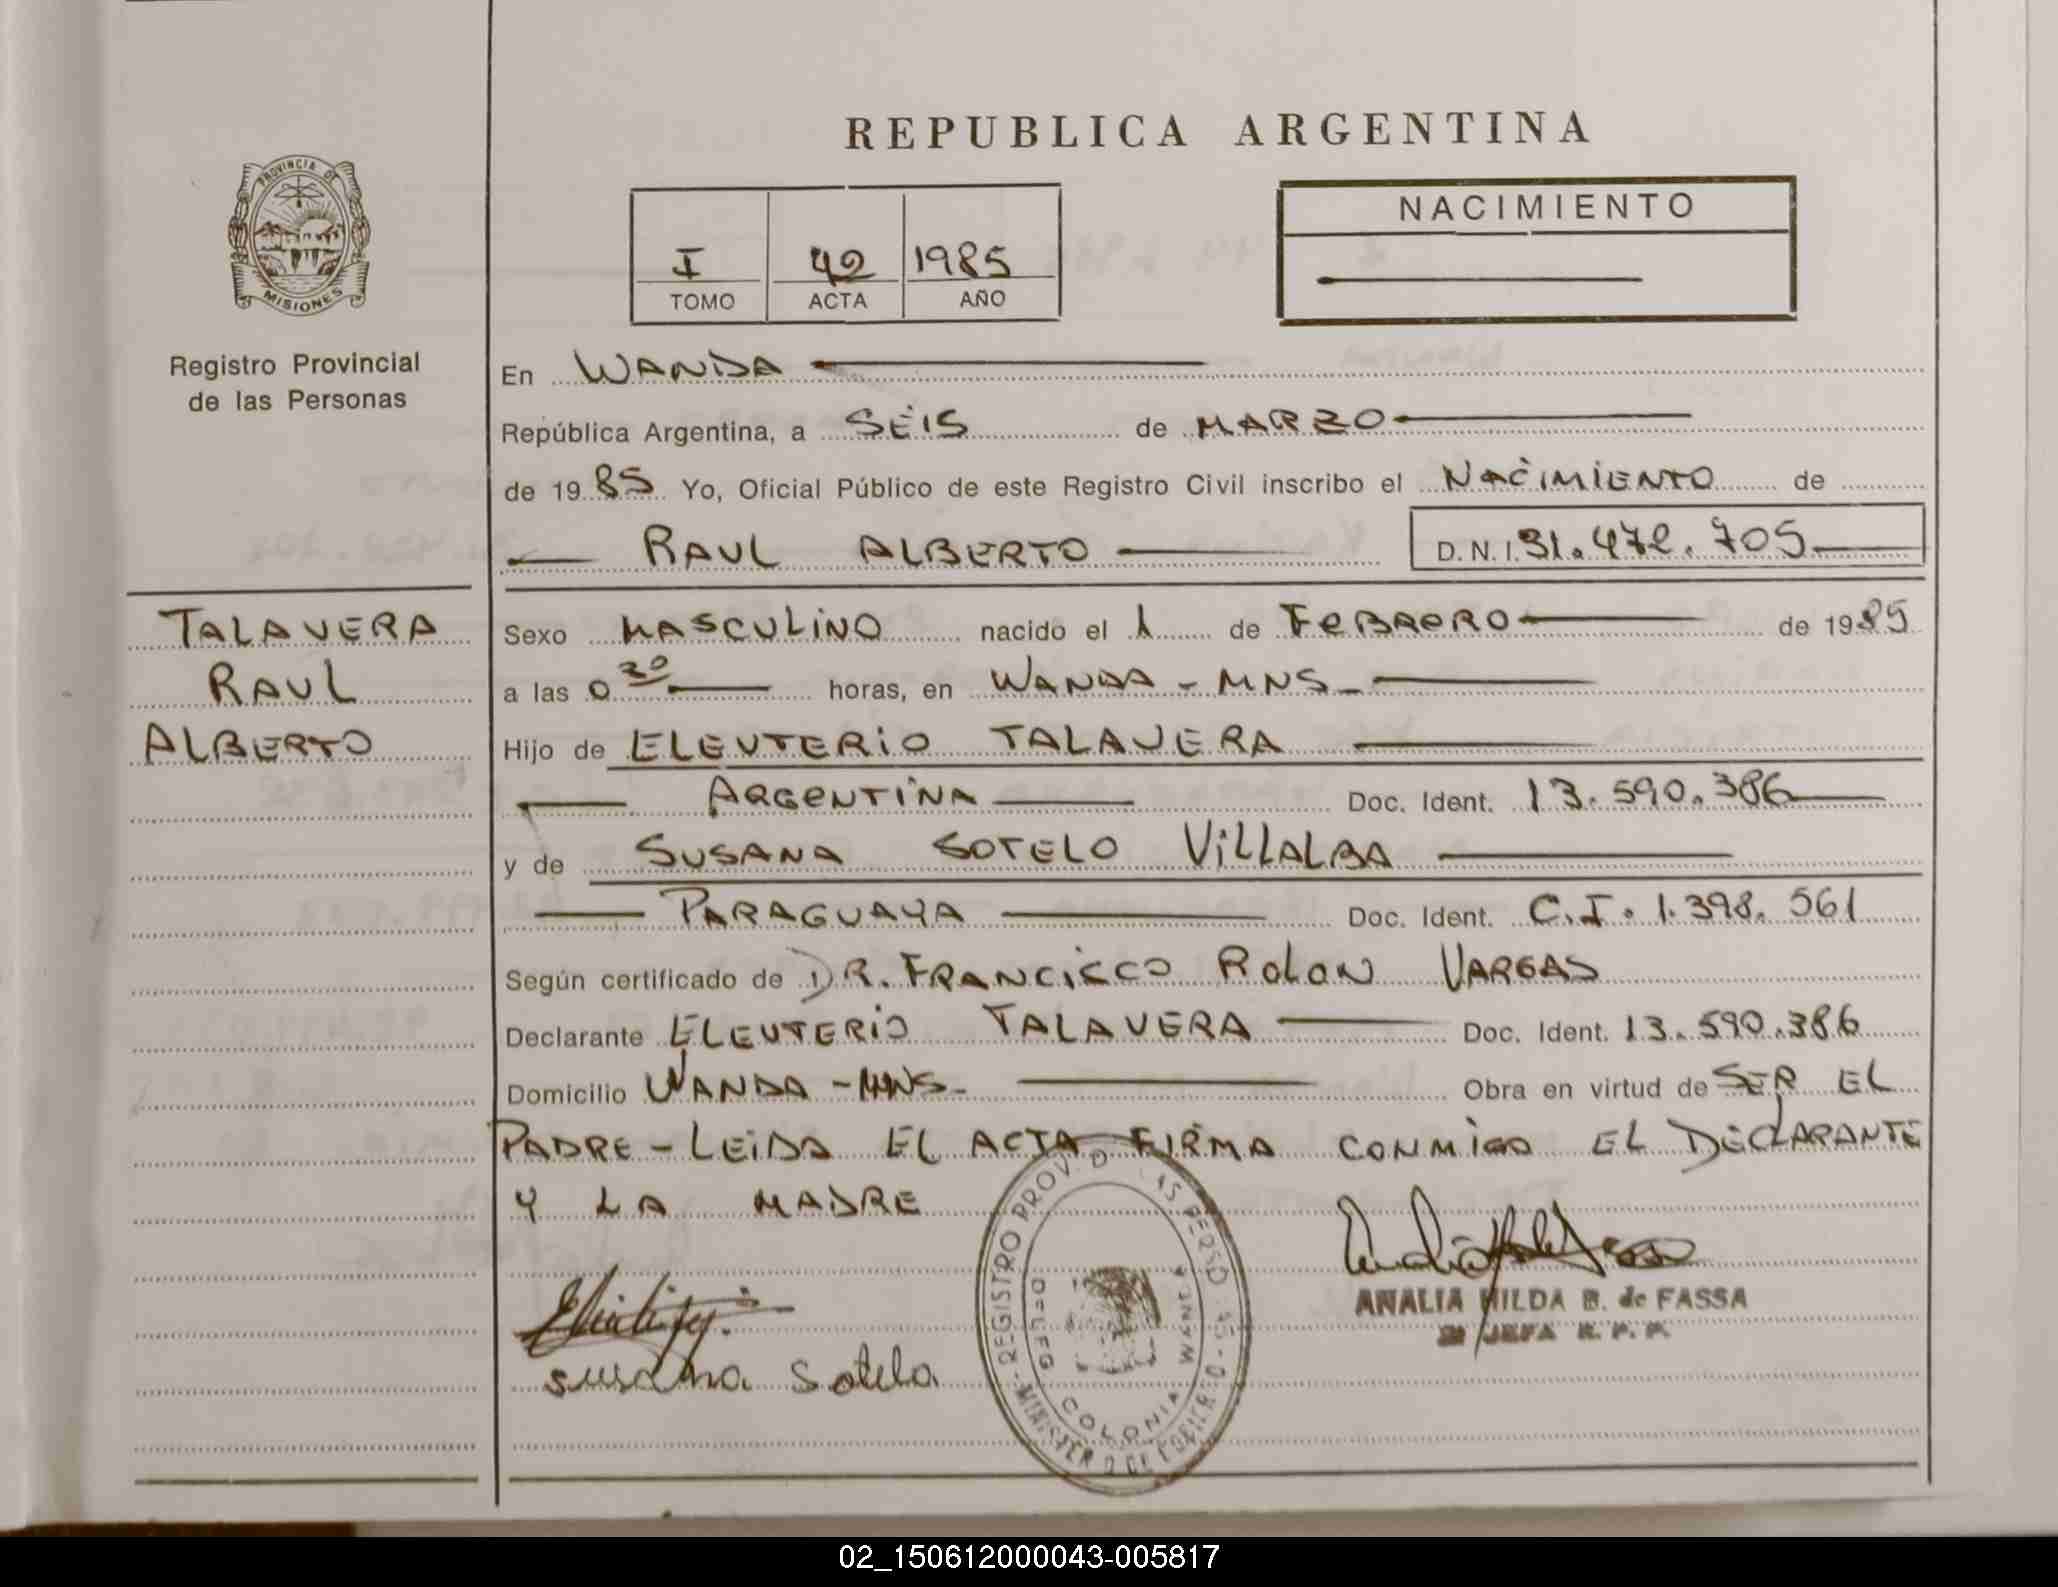 PROVINCIA DE
MISIONES
Registro Provincial
de las Personas
TALAVERA
RAUL
ALBERTO
REPUBLICA ARGENTINA
I 42 1985
TOMO ACTA AÑO
NACIMIENTO
En WANDA
República Argentina, a SEIS de MARZO
de 1985 Yo, Oficial Público de este Registro Civil inscribo el NACIMIENTO de
RAUL ALBERTO D.N.I. 31.472.705
Sexo MASCULINO nacido el 1 de FEBRERO de 1985
a las 0 30 horas, en WANDA - MNS -
Hijo de ELEUTERIO TALAVERA
ARGENTINA Doc. Ident. 13.590.386
y de SUSANA SOTELO VILLALBA
PARAGUAYA Doc. Ident. C.I. 1.398.561
Según certificado de DR. FRANCISCO ROLON VARGAS
Declarante ELEUTERIO TALAVERA Doc. Ident. 13.590.386
Domicilio WANDA - MNS - Obra en virtud de SER EL
PADRE - LEIDA EL ACTA FIRMA CONMIGO EL DECLARANTE
Y LA MADRE
susana Sotelo
REGISTRO PROV. D LAS PERSO
COLONIA WANDA
ANALIA HILDA B. de FASSA
JEFA R. P. P.
02_150612000043-005817